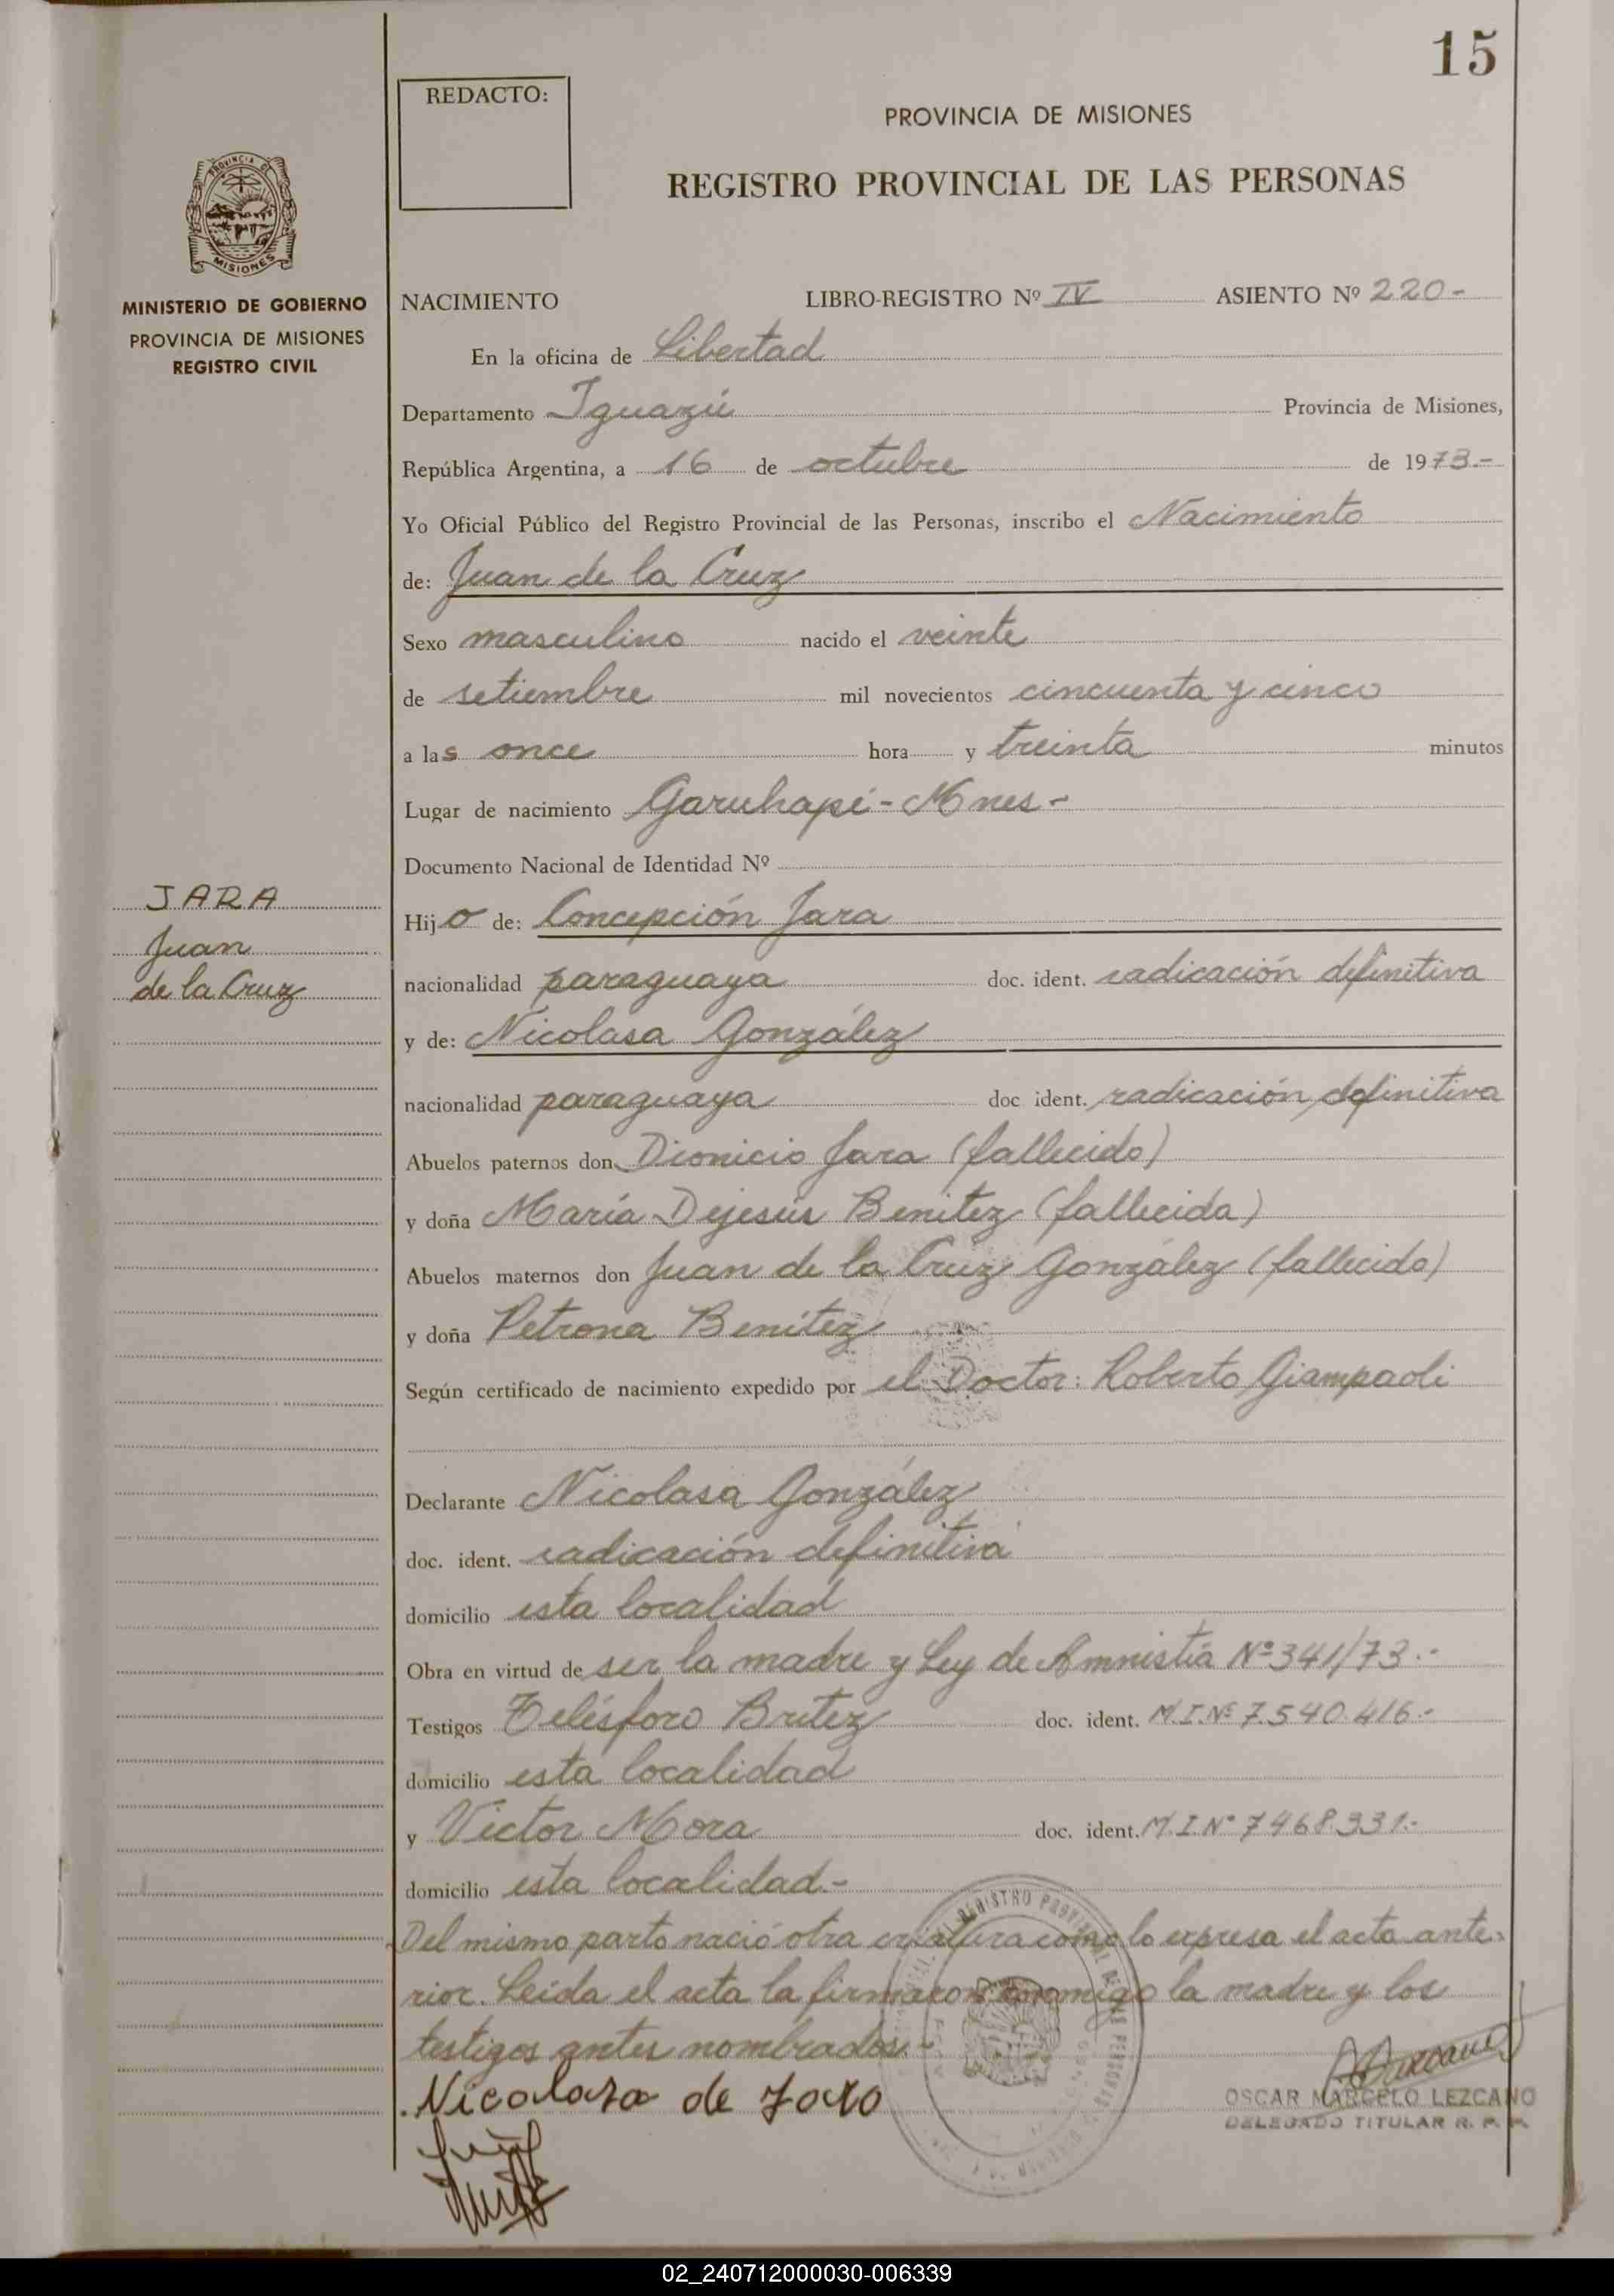 15
REDACTO:
PROVINCIA DE MISIONES
REGISTRO PROVINCIAL DE LAS PERSONAS
PROVINCIA DE
MISIONES
MINISTERIO DE GOBIERNO
PROVINCIA DE MISIONES
REGISTRO CIVIL
NACIMIENTO LIBRO-REGISTRO Nº IV ASIENTO Nº 220-
En la oficina de Libertad
Departamento Iguazú Provincia de Misiones,
República Argentina, a 16 de octubre de 1973.-
Yo Oficial Público del Registro Provincial de las Personas, inscribo el Nacimiento
de: Juan de la Cruz
Sexo masculino nacido el veinte
de setiembre mil novecientos cincuenta y cinco
a las once hora y treinta minutos
Lugar de nacimiento Garuhapé-Mnes-
Documento Nacional de Identidad Nº
JARA
Juan
de la Cruz
Hijo de: Concepción Jara
nacionalidad paraguaya doc. ident. radicación definitiva
y de: Nicolasa González
nacionalidad paraguaya doc ident. radicación definitiva
Abuelos paternos don Dionicio Jara (fallecido)
y doña María Dejesús Benítez (fallecida)
Abuelos maternos don Juan de la Cruz González (fallecido)
y doña Petrona Benítez
Según certificado de nacimiento expedido por el Doctor: Roberto Giampaoli
Declarante Nicolasa González
doc. ident. radicación definitiva
domicilio esta localidad
Obra en virtud de ser la madre y Ley de Amnistía Nº 341/73.-
Testigos Telésforo Britez doc. ident. M.I.Nº 7.540.416.-
domicilio esta localidad
y Victor Mora doc. ident. M.I Nº 7468931.-
domicilio esta localidad.-
Del mismo parto nació otra criatura como lo expresa el acta ante-
rior. Leida el acta la firmaron conmigo la madre y los
testigos antes nombrados.-
Nicolasa de Jara
OSCAR MARCELO LEZCANO
DELEGADO TITULAR R. P. P.
02_240712000030-006339